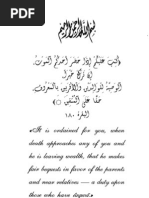 بسم الله الرحمن الرحيم
﴿كُتِبَ عَلَيْكُمْ إِذَا حَضَرَ أَحَدَكُمُ الْمَوْتُ
إِن تَرَكَ خَيْرًا
الْوَصِيَّةُ لِلْوَالِدَيْنِ وَالْأَقْرَبِينَ بِالْمَعْرُوفِ
حَقًّا عَلَى الْمُتَّقِينَ﴾
البقرة ١٨٠
«It is ordained for you, when
death approaches any of you and
he is leaving wealth, that he makes
fair bequests in favor of the parents
and near relatives — a duty upon
those who have